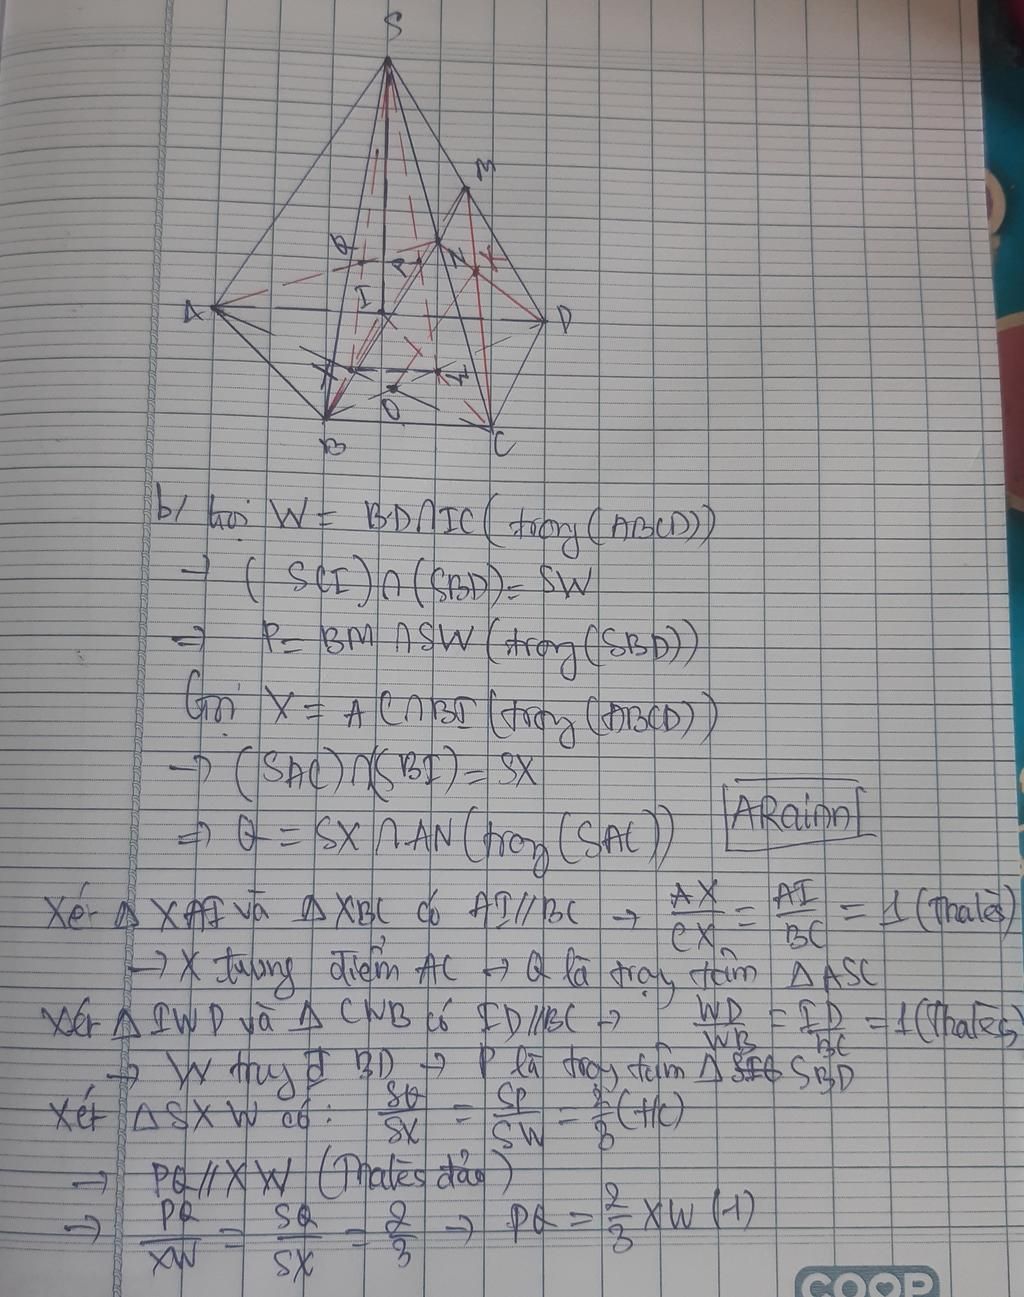 S
M
Q
P
N
K
I
A
D
X
W
O
B
C
b/ Gọi W = BD∩IC (trong (ABCD))
→ (SCI)∩(SBD) = SW
⇒ P = BM∩SW (trong (SBD))
Gọi X = AC∩BI (trong (ABCD))
→ (SAC)∩(SBI) = SX
⇒ Q = SX∩AN (trong (SAC))
ARainn
Xét Δ XAI và Δ XBC có AI//BC → AX/CX = AI/BC = 1 (Thalès)
→ X trung điểm AC → Q là trọng tâm Δ ASC
Xét Δ IWD và Δ CWB có ID//BC → WD/WB = ID/BC = 1 (Thalès)
→ W trung đ BD → P là trọng tâm Δ SBD
Xét Δ SXW có: SQ/SX = SP/SW = 2/3 (t/c)
→ PQ//XW (Thalès đảo)
→ PQ/XW = SQ/SX = 2/3 → PQ = 2/3 XW (1)
COOP